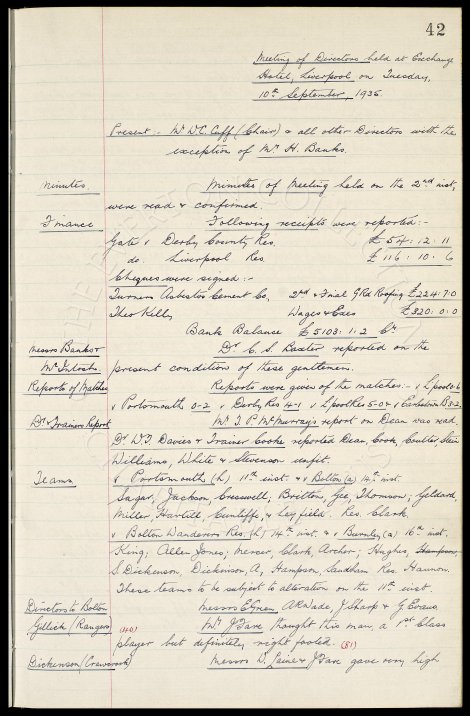 42
Meeting of Directors held at Exchange
Hotel, Liverpool on Tuesday,
10th September, 1935.
Present :- Mr W.C. Cuff (Chair) & all other Directors with the
exception of Mr. H. Banks.
Minutes Minutes of Meeting held on the 2nd inst,
were read & confirmed.
Finance Following receipts were reported:-
Gate v Derby County Res. £54:12:11
do. Liverpool Res £116:10:6
Cheques were signed:-
Turners Asbestos Cement Co, 2nd & Final G Rd Roofing £224:7:0
Theo Kelly Wages & Exes £320:0:0
Bank Balance £5103:1:2 Cr.
Messrs Banks & Dr. C. S. Baxter reported on the
McIntosh present condition of these gentlemen.
Reports of Matches Reports were given of the matches:- v Lpool 0-6
v Portsmouth 0-2 v Derby Res 4-1 v Lpool Res 5-0 & v Earlestown B 3-2.
Dr & Trainers Report Mr. T. P. McMurray's report on Dean was read.
Dr W.F. Davies & Trainer Cooke reported Dean, Cook, Coulter, Stein
Williams, White & Stevenson unfit.
Teams v Portsmouth (h) 11th inst. & v Bolton (a) 14th inst.
Sagar; Jackson, Cresswell; Britton, Gee, Thomson; Geldard,
Miller, Hartill, Cunliffe, & Leyfield. Res. Clark
v Bolton Wanderers Res. (h) 14th inst. & v Burnley (a) 16th inst.
King; Allen, Jones; Mercer, Clark, Archer; Hughes, Hampson,
S. Dickenson, Dickinson, A, Hampson, Sandham Res. Hannon.
These teams to be subject to alteration on the 11th inst.
Directors to Bolton Messrs E. Green, A. Wade, J. Sharp & G. Evans
Gillick/Rangers Mr J Fare thought this man, a 1st class
(40)
player but definitely right footed. (81)
Dickinson/ Messrs D. & J Fare gave very high